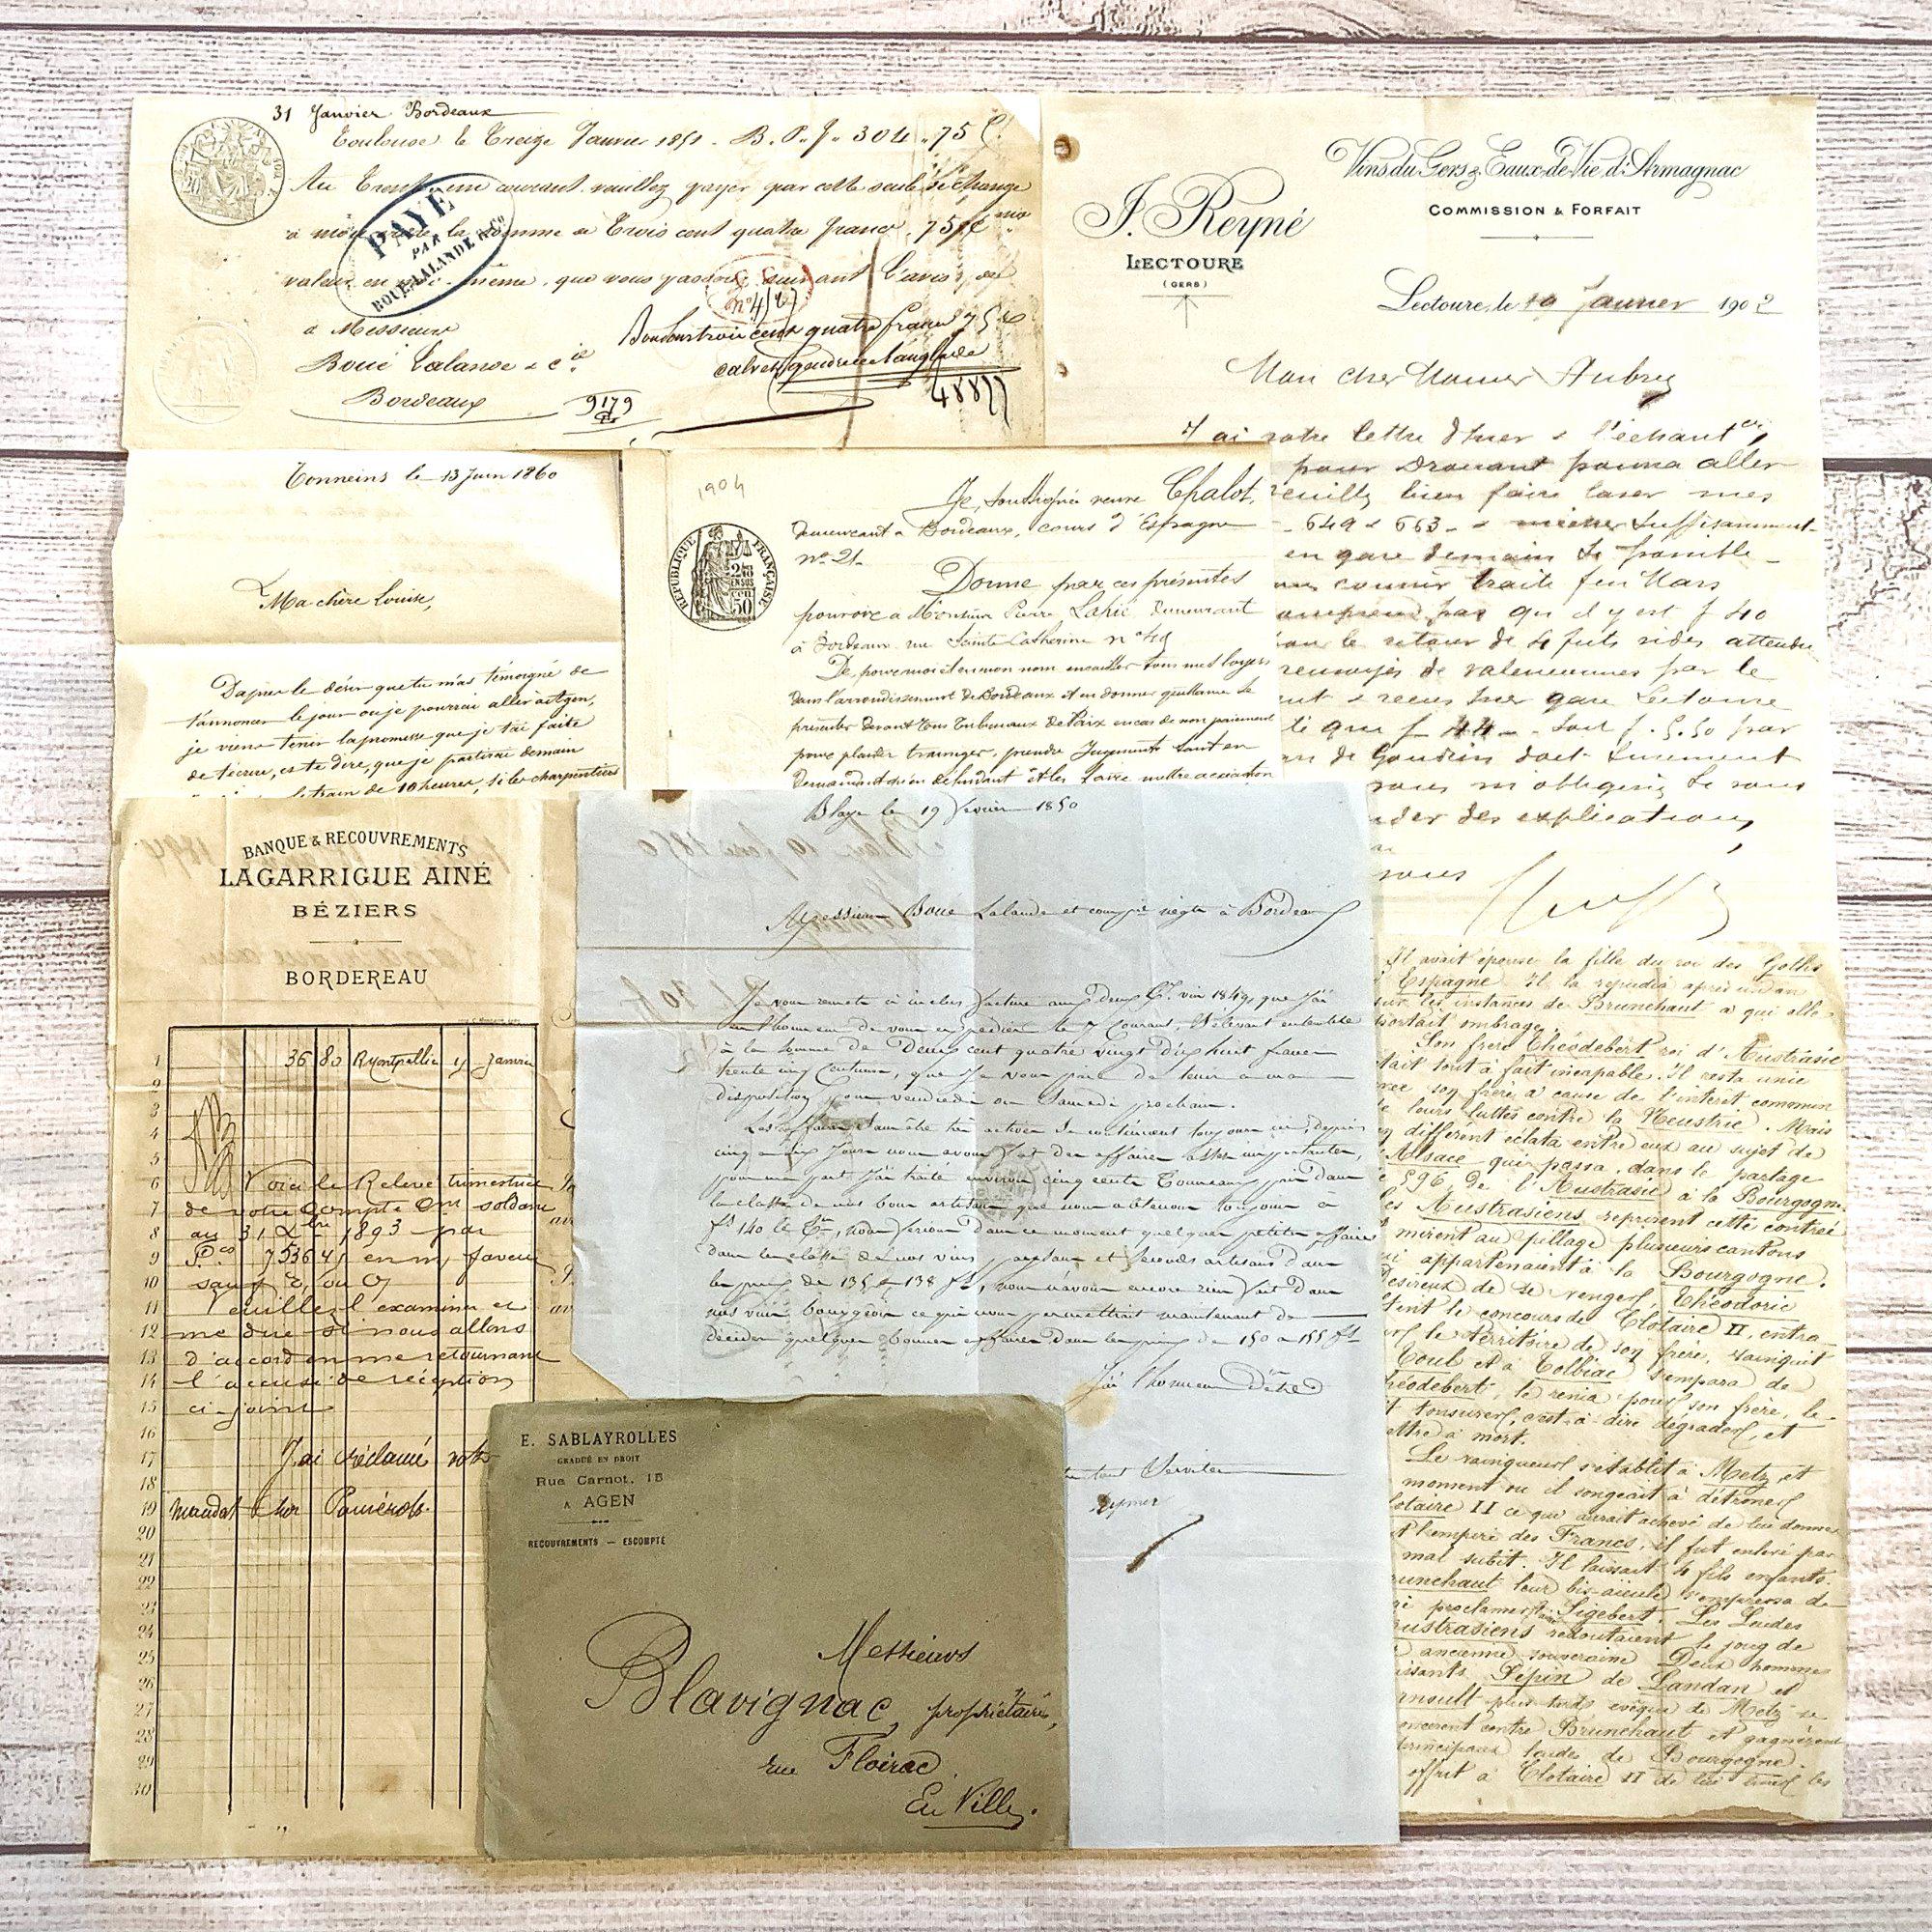 31 Janvier Bordeaux
Toulouse le Treize Janvier 1851 . B. P. f. 304 . 75 C.
courant veuillez payer par cette seule de change
à la somme de Trois cent quatre francs 75
valeur en même, que vous passerez suivant l'avis de
à Messieurs
Boué Lalande & Cie
Bordeaux
9179
Bon pour trois cent quatre francs 75
48877
PAYÉ
PAR
BOUÉ LALANDE & Co
J. Reyné
LECTOURE
(GERS)
Vins du Gers & Eaux-de-Vie d'Armagnac
COMMISSION & FORFAIT
Lectoure, le 19 Janvier 1902
Mon cher Monsieur Aubry
J'ai votre lettre d'hier &
pour Drouant pourra aller
veuillez bien faire laver mes
649 & 663 - & suffisamment
en gare demain si possible
courrier traite fin Mars
pas qu'il y est f 40
le retour de 4 futs vides attendu
de Valenciennes par le
hier gare Lectoure
que f 44 - soit f. 5.50 par
de Gondrin doit
vous m'obligerez de vous
des explications,
vous
Tonneins le 13 Juin 1860
Ma chère Louise,
D'après le désir que tu m'as témoigné de
t'annoncer le jour où je pourrai aller à Agen,
je viens tenir la promesse que je t'ai faite
de t'écrire, c'est à dire, que je partirai demain
le train de 10 heures, si les charpentiers
1904
RÉPUBLIQUE FRANÇAISE
50
Je, soussignée veuve Chalot,
demeurant à Bordeaux, cours d'Espagne
no 21-
Donne par ces présentes
pouvoir à Monsieur Pierre Lafié demeurant
à Bordeaux rue Sainte Catherine no 49
De pour moi et en mon nom encaisser tous mes loyers
dans l'arrondissement de Bordeaux et en donner quittance se
présenter devant tous Tribunaux de Paix en cas de non paiement
pour plaider transiger, prendre Jugements tant en
demandant qu'en défendant et les faire mettre à exécution
Blaye le 19 février 1850
Messieurs Boué Lalande et compie négts à Bordeaux
Je vous remets ci inclus facture aux deux Tx vin 1849, que j'ai
eu l'honneur de vous expédier le 7 Courant, s'élevant ensemble
à la somme de Deux cent quatre vingt dix huit francs
trente cinq Centimes, que je vous prie de tenir à ma
disposition pour vendredi ou Samedi prochain.
Les affaires sans être très actives se continuent toujours ici, depuis
cinq à six jours nous avons fait des affaires assez importantes,
pour ma part j'ai traité environ cinq cents Tonneaux pris dans
la classe de nos bons artisans que nous obtenons toujours à
fs 140 le Tn, nous ferions dans ce moment quelques petites affaires
dans la classe de nos vins paysans et seconds artisans dans
les prix de 135 & 138 fs, nous n'avons encore rien fait dans
nos vins bourgeois ce qui nous permettrait maintenant de
décider quelques bonnes affaires dans les prix de 150 à 155 fs
J'ai l'honneur d'être
Serviteur
BANQUE & RECOUVREMENTS
LAGARRIGUE AINÉ
BÉZIERS
BORDEREAU
1 36 80 Montpellier 4 Janvier
2
3
4
5
6 Voici le Relevé trimestriel
7 de votre Compte On soldant
8 au 31 Xbre 1893 par
9 en m/ faveur
10 sauf E, ou O/
11 Veuillez l'examiner et
12 me dire si nous allons
13 d'accord en me retournant
14 l'accusé de réception
15 ci-joint
16
17 J'ai réclamé votre
18
19 mandat sur
20
21
22
23
24
25
26
27
28
29
30
E. SABLAYROLLES
GRADUÉ EN DROIT
Rue Carnot, 15
A AGEN
RECOUVREMENTS — ESCOMPTE
Messieurs
Blavignac, propriétaire,
rue Floirac
En Ville.
Il avait épousé la fille du roi des Goths
Espagne. Il la répudia après un an
sur les instances de Brunehaut à qui elle
portait ombrage.
Son frère Théodebert roi d'Austrasie
était tout à fait incapable. Il resta uni
avec son frère à cause de l'intérêt commun
de leurs luttes contre la Neustrie. Mais
un différent éclata entre eux au sujet de
l'Alsace qui passa, dans le partage
de 596, de l'Austrasie à la Bourgogne.
Les Austrasiens reprirent cette contrée
mirent au pillage plusieurs cantons
qui appartenaient à la Bourgogne.
Désireux de se venger, Théodoric
obtint le concours de Clotaire II, entra
sur le territoire de son frère, vainquit
Toul et à Tolbiac s'empara de
Théodebert, le renia pour son frère, le
fit tonsurer, c'est à dire dégrader, et
mettre à mort.
Le vainqueur s'établit à Metz et
moment où il songeait à détrôner
Clotaire II ce qui aurait achevé de lui donner
l'empire des Francs, il fut enlevé par
mal subit. Il laissait 4 fils enfants.
Brunehaut leur bis-aïeule s'empressa de
proclamer Sigebert. Les Leudes
Austrasiens redoutaient le joug de
ancienne souveraine Deux hommes
puissants Pépin de Landen et
Arnoult plus tard évêque de Metz se
contre Brunehaut et gagnèrent
principaux leudes de Bourgogne.
offrit à Clotaire II de lui les